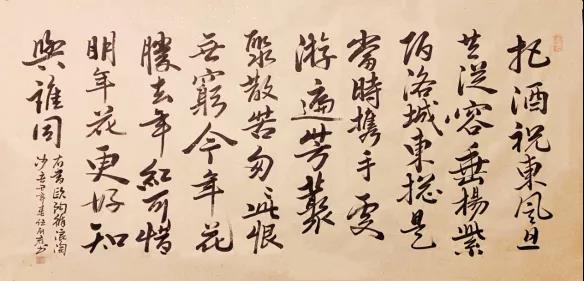 把酒祝東風且
共從容垂楊紫
陌洛城東總是
當時携手處
游遍芳叢
聚散苦匆匆此恨
無窮今年花
勝去年紅可惜
明年花更好知
與誰同
右書歐陽修浪淘
沙